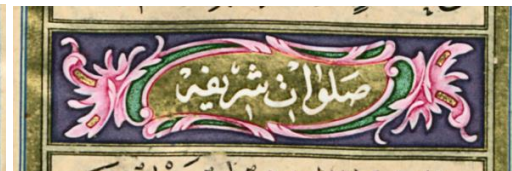 صلوات شريفه